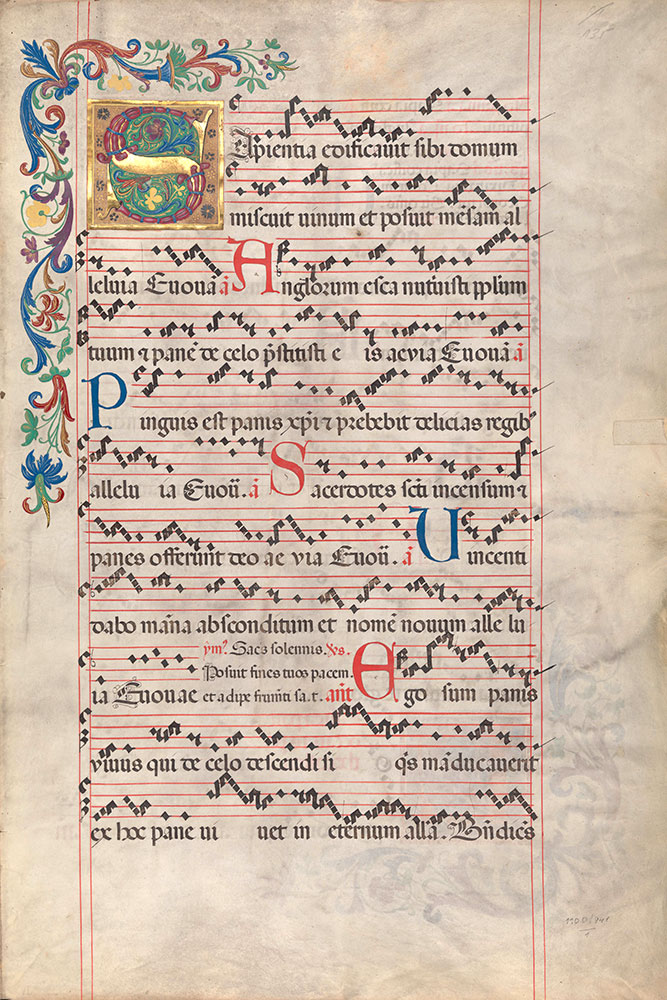 Sapientia edificavit sibi domum
miscuit uinum et posuit mẽsam al
leluia Euouã ã Anglorum esca nutriuisti pplum
tuum ⁊ panẽ de celo p̃stitisti e is aeuia Euouã ã
Pinguis est panis xp̃i ⁊ prebebit delicias regib⁹
allelu ia Euoũ. ã Sacerdotes sc̃ti incensum ⁊
panes offerunt deo ae via Euoũ. ã Uincenti
dabo mãna absconditum et nomẽ nouum alle lu
ym̃⁹. Sac̃s solennis. Vs.
Posuit fines tuos pacem.
ia Euouae et adipe frum̃ti sa. t. ant Ego sum panis
viuus qui de celo descendi si q̃s mãducauerit
ex hoc pane ui uet in eternum allã. Bñdic̃s